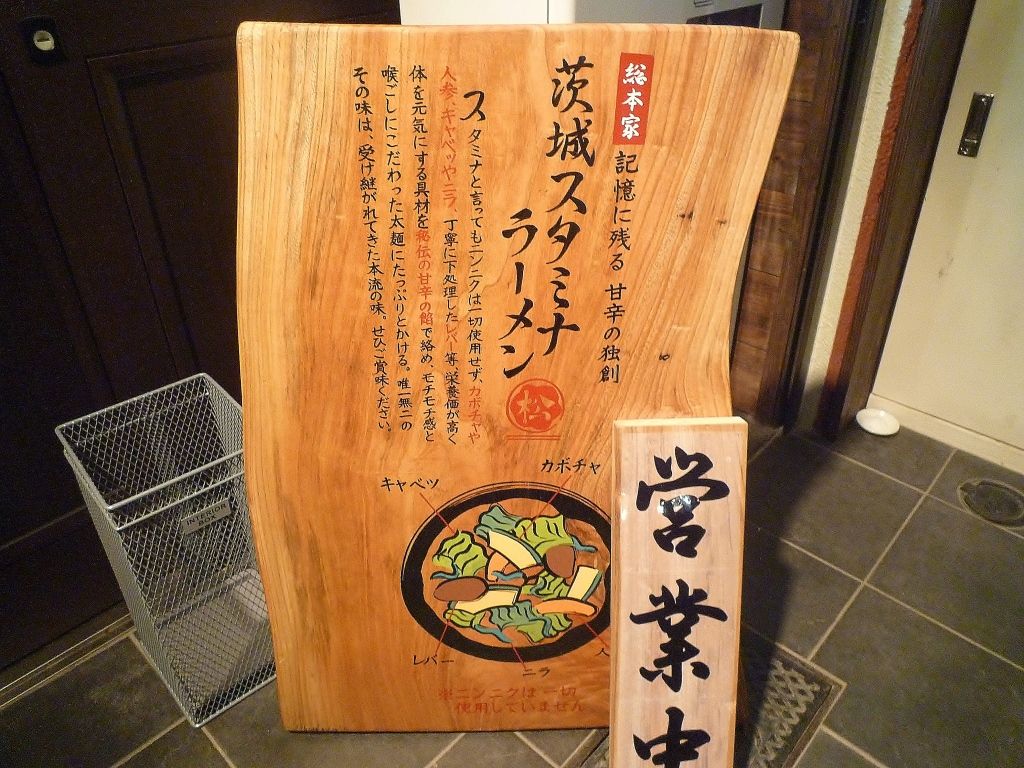 総本家
記憶に残る 甘辛の独創
茨城スタミナ
ラーメン
松
スタミナと言ってもニンニクは一切使用せず、カボチャや
人参、キャベツやニラ、丁寧に下処理したレバー等、栄養価が高く
体を元気にする具材を秘伝の甘辛の餡で絡め、モチモチ感と
喉ごしにこだわった太麺にたっぷりとかける。唯一無二の
その味は、受け継がれてきた本流の味。ぜひご賞味ください。
カボチャ
キャベツ
レバー
ニラ
人
※ニンニクは一切
使用していません
営業中
INTERIOR
BOX